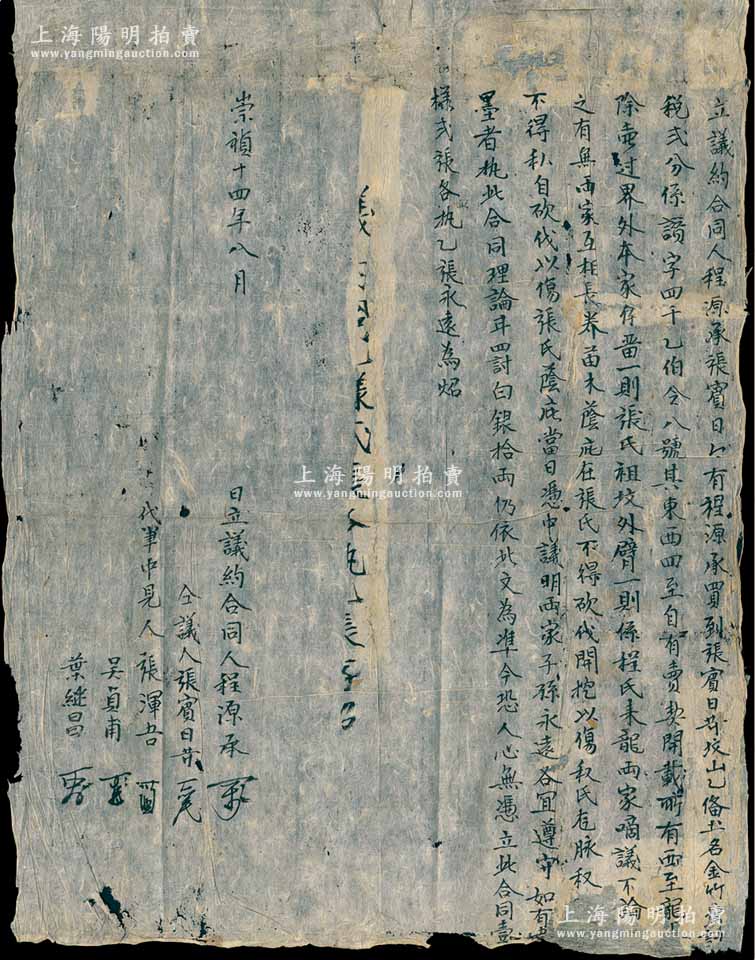 上海陽明拍賣
www.yangmingauction.com
立議約合同人程源承張賓日今有程源承買到張賓日等坟山乙備土名金竹
稅弍分係讓字四千乙伯令八號其東西四至自有賣契開載所有西至龍
除壶过界外本家存留一則張氏祖坟外臂一則係程氏來龍兩家嘀議不論
之有無兩家互相長养苗木蔭庇在張氏不得砍伐開挖以傷程氏龍脉程
不得私自砍伐以傷張氏蔭庇當日憑中議明兩家子孫永遠各宜遵守如有
墨者执此合同理論耳四討白銀拾兩仍依此文為準今恐人心無憑立此合同壹
樣弍張各执乙張永遠為炤
崇禎十四年八月
日立議約合同人程源承
仝議人張賓日等
代筆中見人張渾吾
吳貞甫
葉継昌
上海陽明拍賣
www.yangmingauction.com
上海陽明拍賣
www.yangmingauction.com